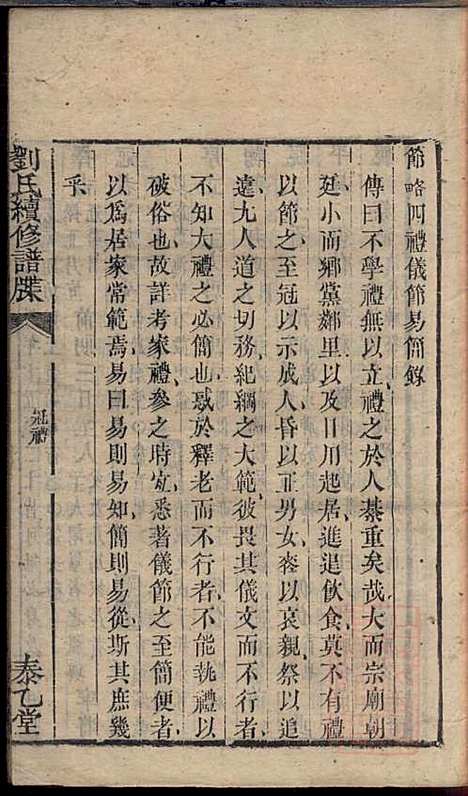 節略四禮儀節易簡錄
傳曰不學禮無以立禮之於人綦重矣哉大而宗廟朝
廷小而鄉黨鄰里以及日用起居進退飲食莫不有禮
以節之至冠以示成人昏以正男女喪以哀親祭以追
遠九人道之切務紀綱之大範彼畏其儀文而不行者
不知大禮之必簡也惑於釋老而不行者不能執禮以
破俗也故詳考家禮參之時宐悉著儀節之至簡便者
以爲居家常範焉易曰易則易知簡則易從斯其庶幾
乎
劉氏續修譜牒
冠禮
泰乙堂